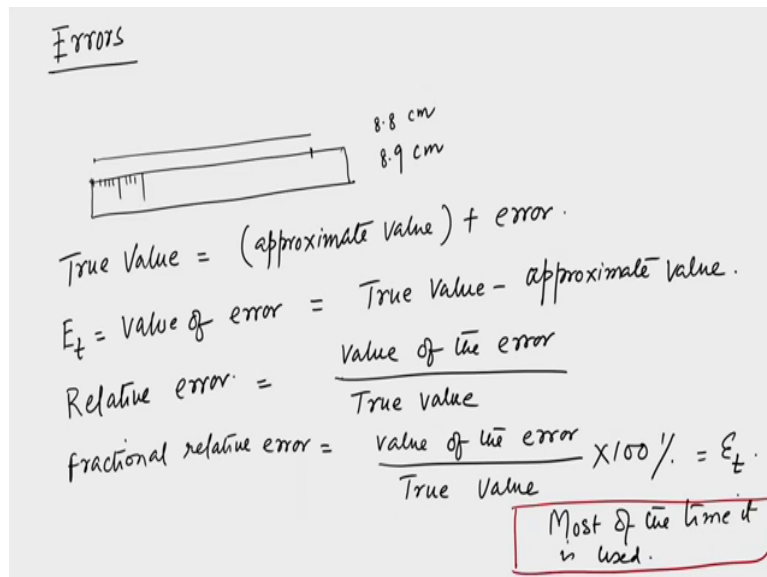 Errors
8.8 cm
8.9 cm
True Value = (approximate value) + error.
E_t = Value of error = True Value - approximate value.
Relative error. = Value of the error / True value
fractional relative error = value of the error / True Value × 100 % = ε_t.
Most of the time it
is used.